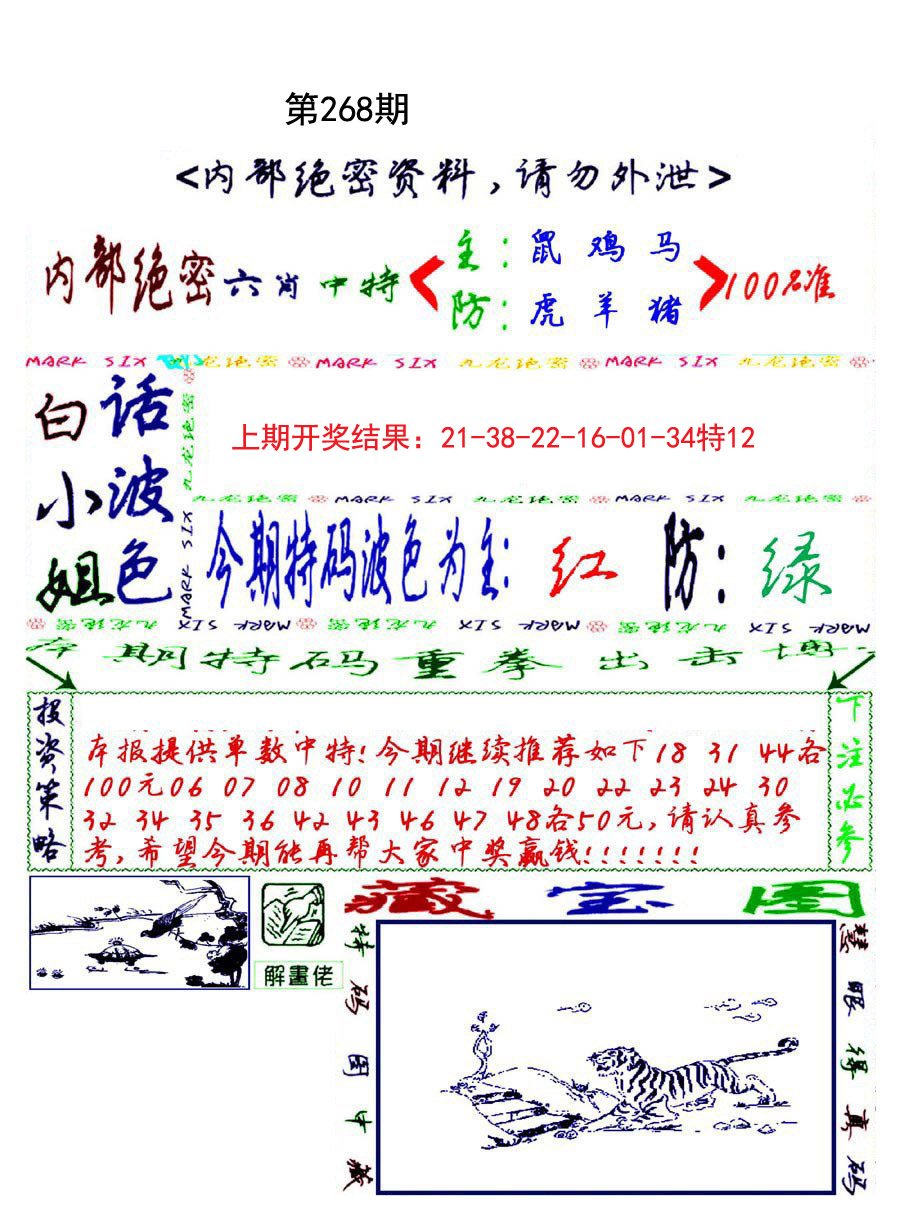 第268期
<内部绝密资料,请勿外泄>
内部绝密六肖中特
主:鼠鸡马
防:虎羊猪
100%准
MARK SIX 九龙绝密 MARK SIX 九龙绝密 MARK SIX 九龙绝密
白话
小波
姐色
九龙绝密
MARK SIX
上期开奖结果：21-38-22-16-01-34特12
九龙绝密 MARK SIX 九龙绝密 MARK SIX 九龙绝密
今期特码波色为主:红 防:绿
九龙绝密 MARK SIX 九龙绝密 MARK SIX 九龙绝密 MARK SIX
本期特码重拳出击博
投资策略
本报提供单数中特!今期继续推荐如下18 31 44各
100元06 07 08 10 11 12 19 20 22 23 24 30
32 34 35 36 42 43 46 47 48各50元,请认真参
考,希望今期能再帮大家中奖赢钱!!!!!!!
下注必参
解畫佬
藏宝图
特码图中藏
慧眼得真码